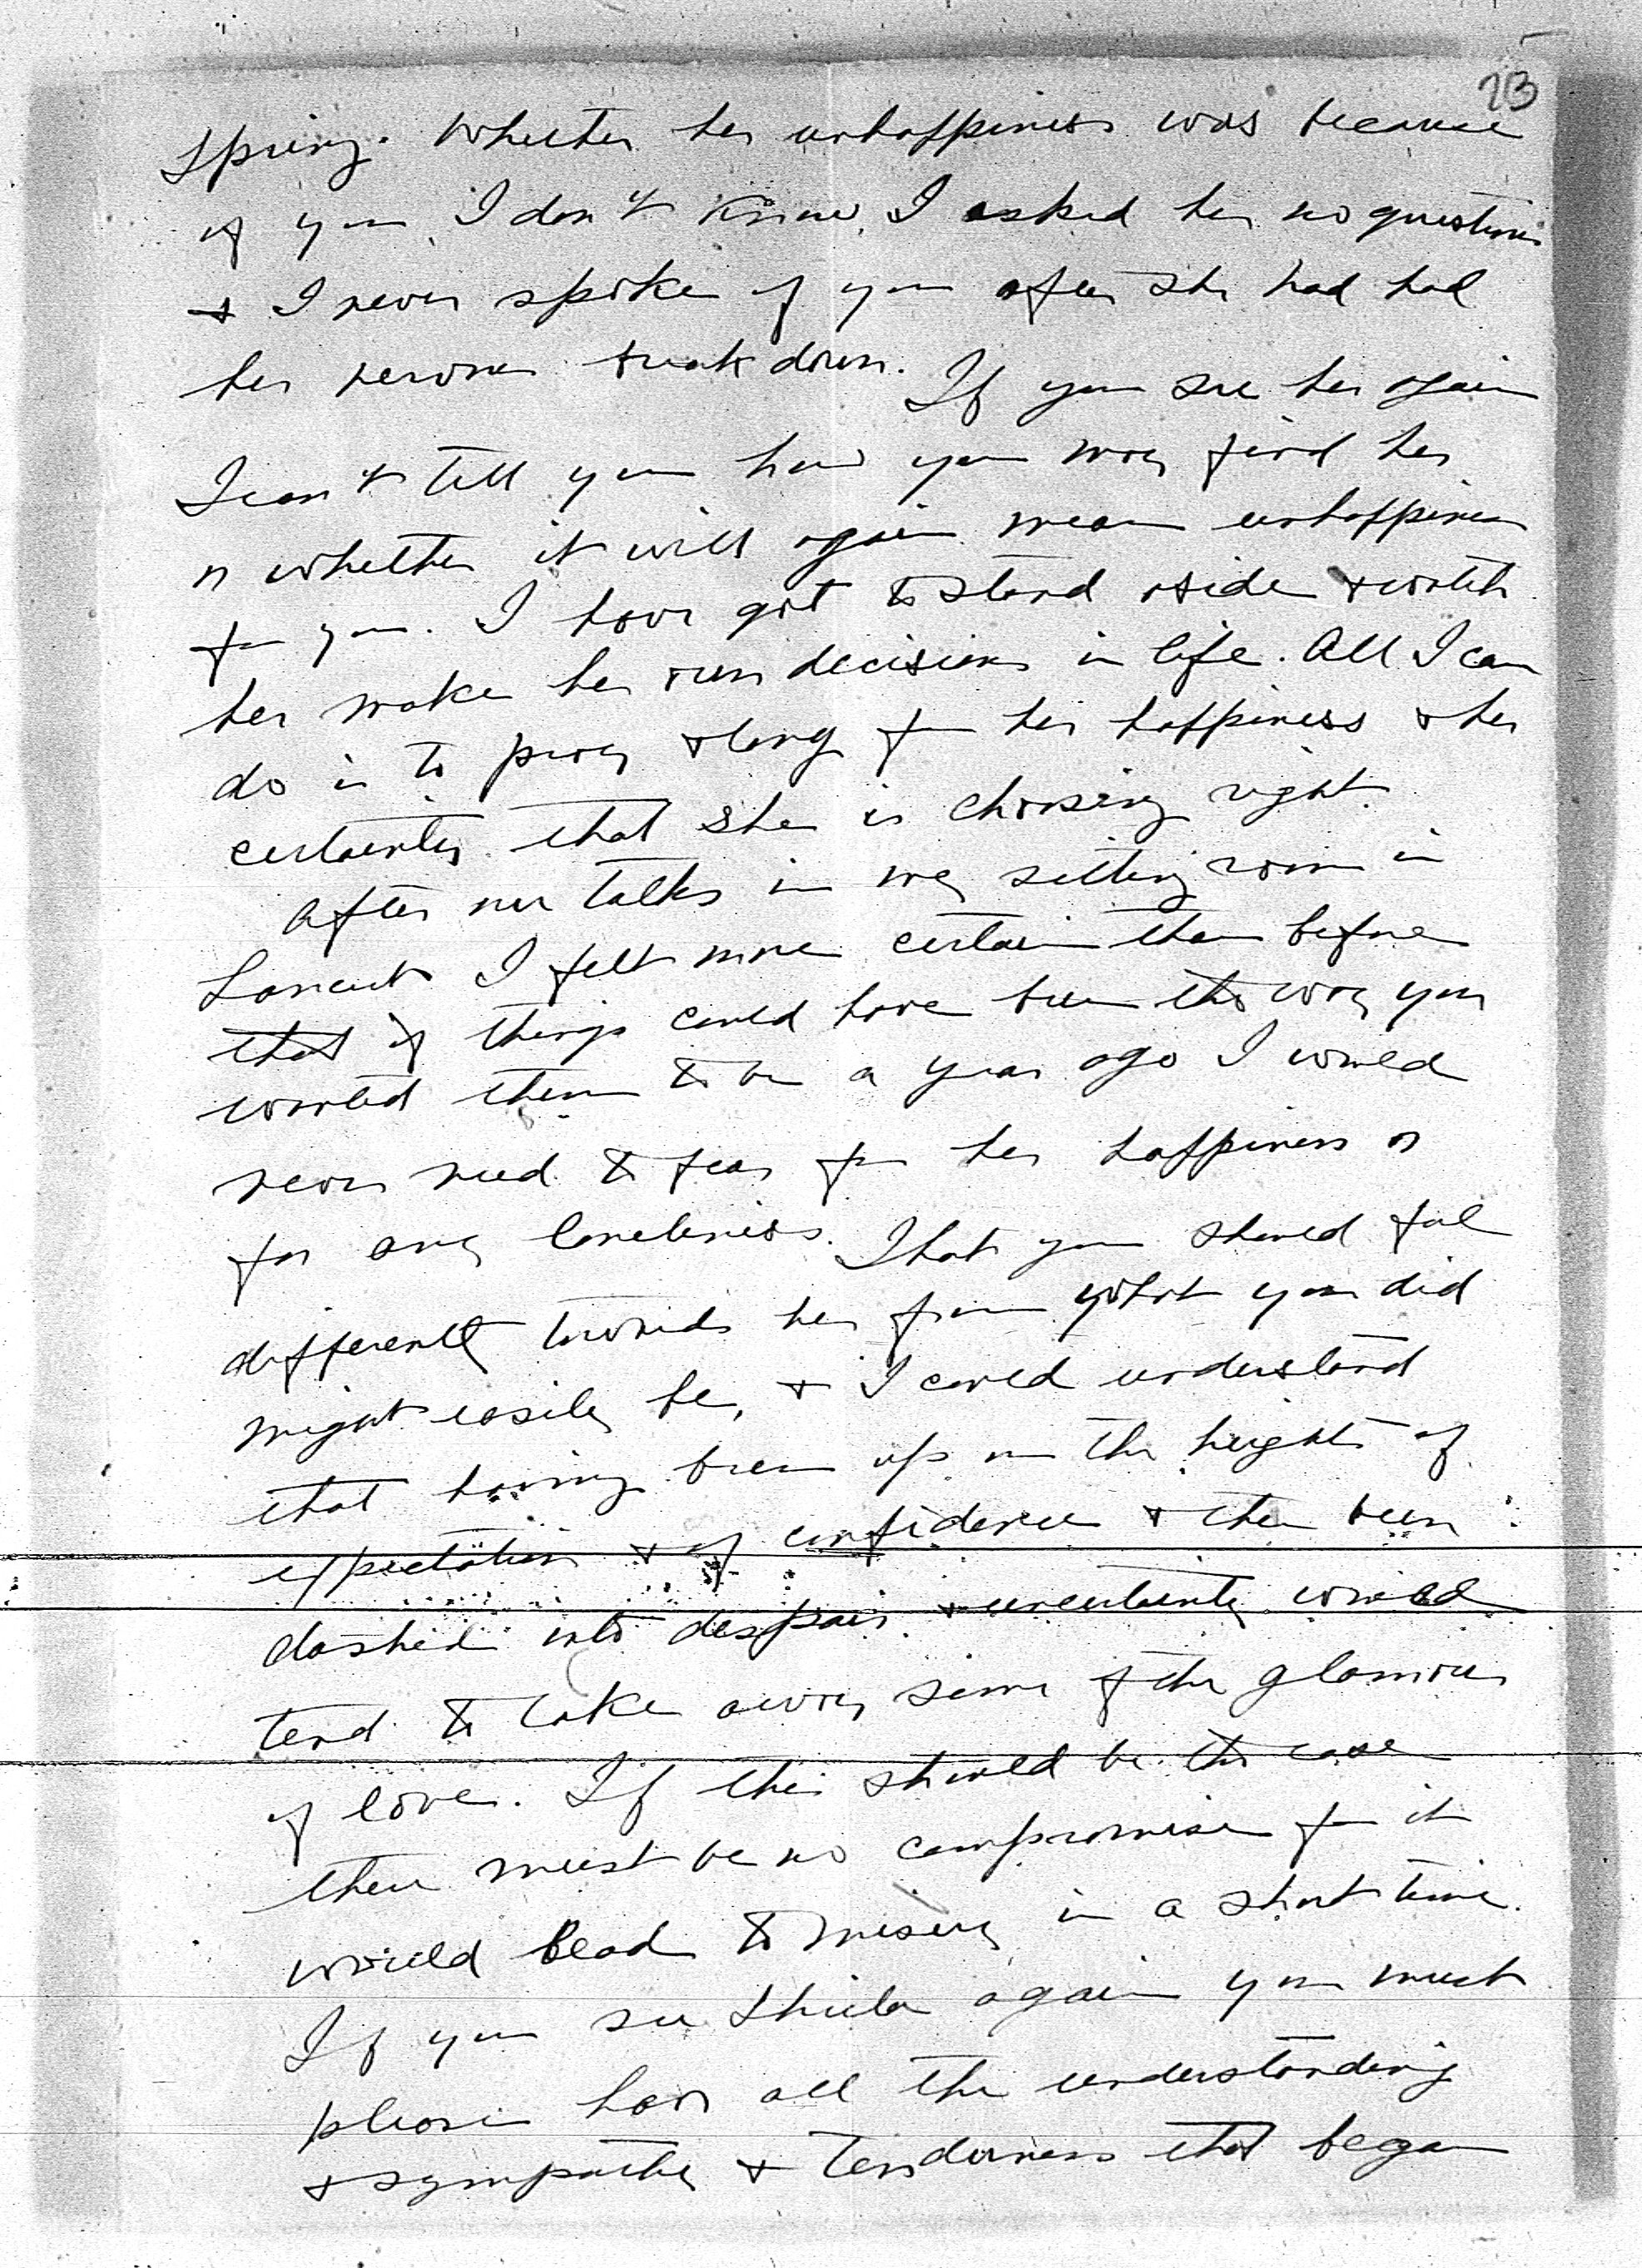 23
Spring. Whether her unhappiness was because
of you, I don't know. I asked her no questions
& I never spoke of you after she had had
her nervous breakdown. If you see her again
I can't tell you how you may find her
or whether it will again mean unhappiness
for you. I have got to stand aside & watch
her make her own decisions in life. All I can
do is to pray & long for her happiness & her
certainty that she is choosing right.
After our talks in my sitting room in
Lancut I felt more certain than before
that if things could have been the way you
wanted them to be a year ago I would
never need to fear for her happiness or
for any loneliness. That you should feel
differently towards her from what you did
might easily be, & I could understand
that having been up on the heights of
expectation & of confidence & then been
dashed into despair & uncertainty would
tend to take away some of the glamour
of love. If this should be the case
there must be no compromise for it
would lead to misery in a short time.
If you see Sheila again you must
please have all the understanding
& sympathy & tenderness that began